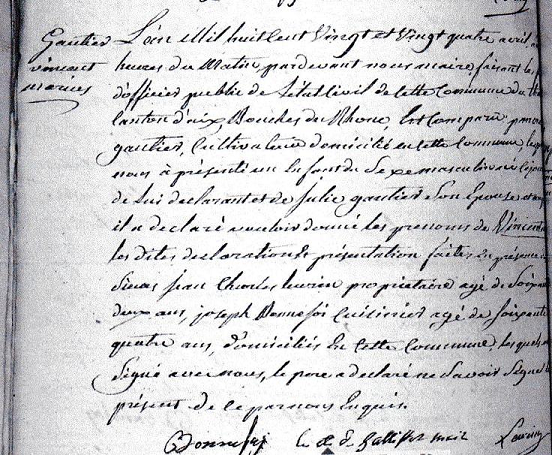 Gautier
vincent
marius
L'an Mil huit Cent Vingt et Vingt quatre avril, a
heures du Matin pardevant nous maire, faisant les
d'officier public de l'état Civil de Cette Commune du tho
Canton d'aix, Bouches du Rhone, Est Comparu
gautier, Cultivateur domicilié en cette Commune, lequel
nous à présenté un Enfant du Sexe masculin né
de lui declarant et de Julie gautier Son Epouse et
il a declaré vouloir donné les prenoms de Vincent
les dites declaration & présentation faites En présence
Sieurs Jean Charles propriétaire agé de Soix
deux ans, joseph Bonnefoi Cuisinier agé de Soixante
quatre ans, domiciliés En Cette Commune, lesquels
Signé avec nous, le pere a declaré ne Savoir Signe
présent de ce par nous Enquis.
Bonnefoi le Galliffet mair